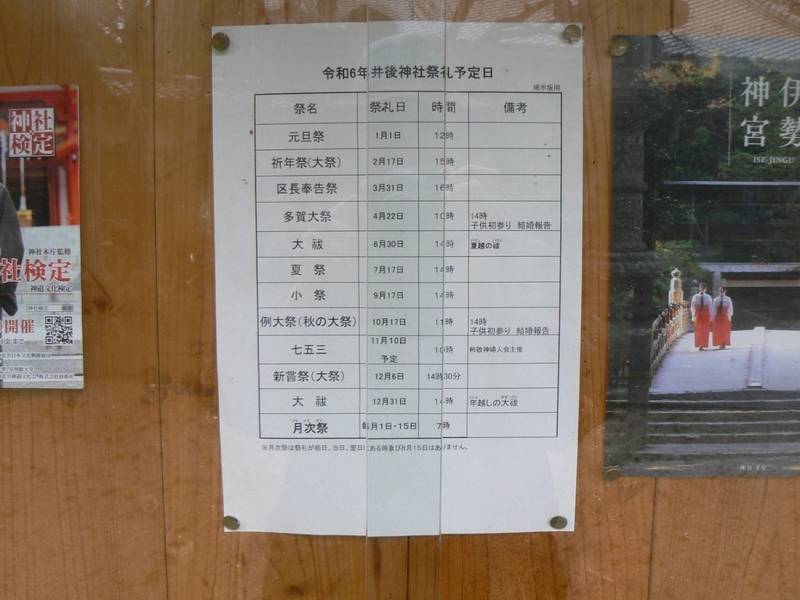 令和6年井後神社祭礼予定日
掲示版用
祭名 祭礼日 時間 備考
元旦祭 1月1日 12時
祈年祭(大祭) 2月17日 15時
区長奉告祭 3月31日 16時
多賀大祭 4月22日 10時 14時
子供初参り 結婚報告
大 祓 6月30日 14時 夏越の祓
夏 祭 7月17日 14時
小 祭 9月17日 14時
例大祭(秋の大祭) 10月17日 11時 14時
子供初参り 結婚報告
七五三 11月10日
予定 10時 敬神婦人会主催
新嘗祭(大祭) 12月6日 14時30分
大 祓 12月31日 14時 年越しの大祓
月次祭 毎月1日・15日 7時
※月次祭は祭礼が前日、当日、翌日にある時及び8月15日はありません。
神社
検定
神社本庁監修
社検定
神道文化検定
開催
伊勢
神宮
ISE-JINGU